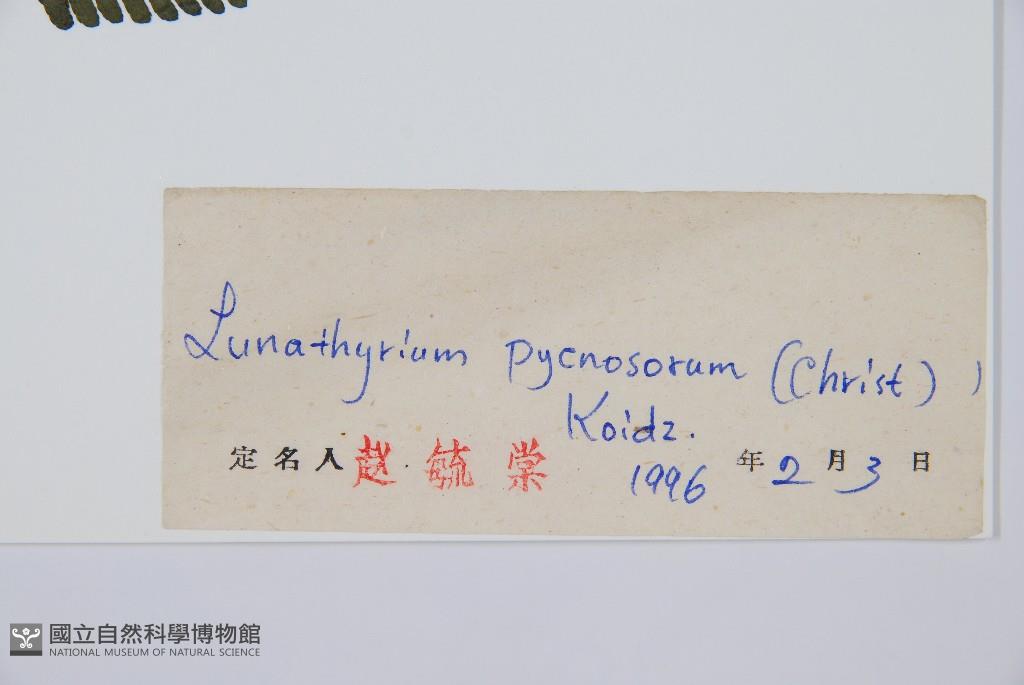 Lunathyrium pycnosorum (Christ) )
Koidz.
定名人 赵毓棠 1996 年 2 月 3 日
國立自然科學博物館
NATIONAL MUSEUM OF NATURAL SCIENCE